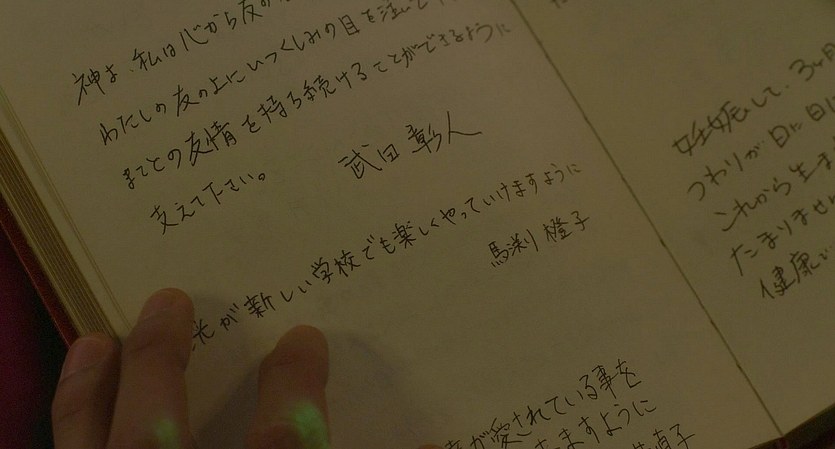 神よ、私は心から友の
わたしの友の上にいつくしみの目を注いで
までとの友情を持ち続けることができるように
支えて下さい。
武田 彰人
光が新しい学校でも楽しくやっていけますように
馬渕 橙子
が愛されている事を
ますように
直子
妊娠して、3ヶ月
つわりが日に日に
これから生ま
たまりませ
健康で